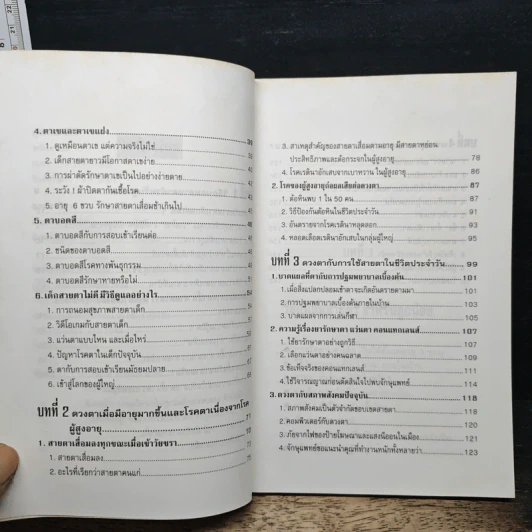 4. ตาเขและตาเขแฝง
1. ดูเหมือนตาเข แต่ความจริงไม่ใช่
2. เด็กสายตายาวมีโอกาสตาเขง่าย
3. การผ่าตัดรักษาตาเขเป็นไปอย่างง่ายดาย
4. ระวัง ! ผ้าปิดตากันเชื้อโรค
5. อายุ 6 ขวบ รักษาสายตาเสื่อมช้าเกินไป
5. ตาบอดสี
1. ตาบอดสีกับการสอบเข้าเรียนต่อ
2. ชนิดของตาบอดสี
3. ตาบอดสีโรคทางพันธุกรรม
4. ตาบอดสีรักษาหายหรือไม่
6. เด็กสายตาไม่ดี มีวิธีดูแลอย่างไร
1. การถนอมสุขภาพสายตาเด็ก
2. วิดีโอเกมกับสายตาเด็ก
3. แว่นตาแบบไหน และเมื่อไหร่
4. ปัญหาโรคตาในเด็กปัจจุบัน
5. ตากับการสอบเข้าเรียนมัธยมปลาย
6. เข้าสู่โลกของผู้ใหญ่
บทที่ 2 ดวงตาเมื่อมีอายุมากขึ้นและโรคตาเนื่องจากโรค
ผู้สูงอายุ 71
1. สายตาเสื่อมลงทุกขณะเมื่อเข้าวัยชรา
1. สายตาเสื่อมลง
2. อะไรที่เรียกว่าสายตาคนแก่
3. สาเหตุสำคัญของสายตาเสื่อมตามอายุ มีสายตาหย่อน
ประสิทธิภาพและต้อกระจกในผู้สูงอายุ 78
4. โรคเรตินาอักเสบจากเบาหวาน ในผู้สูงอายุ 86
2. โรคของผู้สูงอายุก่อผลเสียต่อดวงตา 87
1. ต้อหินพบ 1 ใน 50 คน 87
2. วิธีป้องกันต้อหินในชีวิตประจำวัน 91
3. อันตรายจากโรคเรตินาหลุดลอก 93
4. หลอดเลือดเรตินาอักเสบในกลุ่มผู้ใหญ่ 95
บทที่ 3 ดวงตากับการใช้สายตาในชีวิตประจำวัน 99
1. บาดแผลที่ตากับการปฐมพยาบาลเบื้องต้น 101
1. เมื่อสิ่งแปลกปลอมเข้าตาจะเกิดอันตรายตามมา 101
2. การปฐมพยาบาลเบื้องต้นภายในบ้าน 101
3. บาดแผลจากการเล่นกีฬา 101
2. ความรู้เรื่องยารักษาตา แว่นตา คอนแทกเลนส์ 107
1. ใช้ยารักษาตาอย่างถูกวิธี 107
2. เลือกแว่นตาอย่างคนฉลาด 107
3. ข้อเท็จจริงของคอนแทกเลนส์ 107
4. ใช้วิจารณญาณก่อนตัดสินใจไปพบจักษุแพทย์ 107
3. ดวงตากับสภาพสังคมปัจจุบัน 118
1. สภาพสังคมเป็นตัวจำกัดขอบเขตสายตา 118
2. คอมพิวเตอร์กับดวงตา 120
3. ภัยจากไฟของป้ายโฆษณาและแสงนีออนในเมือง 121
4. จักษุแพทย์ขอแนะนำคุณที่ทำงานหนักทั้งหลายว่า 123